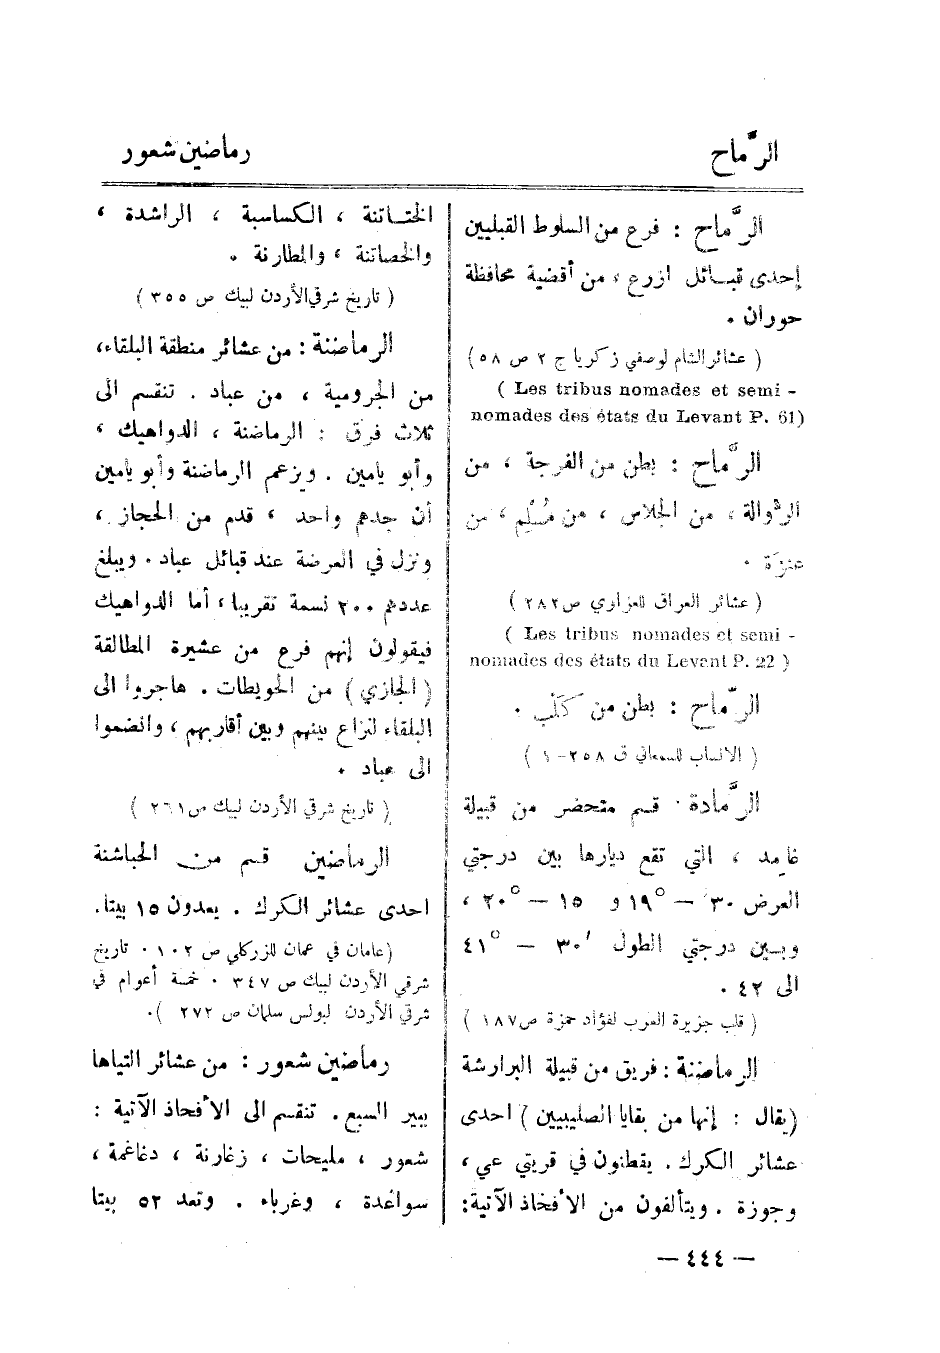 الرَّماح
رماضين شعور
الرَّماح : فرع من السلوط القبليين
إحدى قبـائل ازرع ، من أقضية محافظة
حوران .
( عشائر الشام لوصفي زكريا ج ٢ ص ٥٨ )
( Les tribus nomades et semi -
nomades des états du Levant P. 61)
الرَّماح : بطن من الفرجة ، من
الرُّوالة ، من الجلاس ، من مُسْلِم ، من
عنزَة .
( عشائر العراق للعزاوي ص ٢٨٢ )
( Les tribus nomades et semi -
nomades des états du Levant P. 22 )
الرَّماح : بطن من كَلْب .
( الانساب للسمعاني ق ٢٥٨ - ١ )
الرَّمادة . قسم متحضر من قبيلة
غامد ، التي تقع ديارها بين درجتي
العرض ٣٠َ – ١٩° و ١٥ – ٢٠° ،
وبـين درجتي الطول ٣٠َ – ٤١°
الى ٤٢ .
( قلب جزيرة العرب لفؤاد حمزة ص ١٨٧ )
الرماضنة : فريق من قبيلة البرارشة
(يقال : إنها من بقايا الصليبيين ) احدى
عشائر الكرك . يقطنون في قريتي عي ،
وجوزة . ويتألفون من الأفخاذ الآتية:
الختـاتنة ، الكساسبة ، الراشدة ،
والخصاتنة ، والمطارنة .
( تاريخ شرقي الأردن لبيك ص ٣٥٥ )
الرماضنة : من عشائر منطقة البلقاء،
من الجرومية ، من عباد . تنقسم الى
ثلاث فرق : الرماضنة ، الدواهيك ،
وأبو يامين . ويزعم الرماضنة وأبو يامين
أن جدهم واحد ، قدم من الحجاز ،
ونزل في العرضة عند قبائل عباد . ويبلغ
عددهم ٢٠٠ نسمة تقريبا ، أما الدواهيك
فيقولون إنهم فرع من عشيرة المطالقة
( الجازي ) من الحويطات . هاجروا الى
البلقاء لنزاع بينهم وبين أقاربهم ، وانضموا
الى عباد .
( تاريخ شرقي الأردن لبيك ص ٢٦١ )
الرماضين قسم من الحباشنة
احدى عشائر الكرك . يعدون ١٥ بيتا.
(عامان في عمان للزركلي ص ١٠٢ . تاريخ
شرقي الأردن لبيك ص ٣٤٧ . خمسة أعوام في
شرقي الأردن لبولس سلمان ص ٢٧٢ ).
رماضين شعور : من عشائر التياها
ببير السبع . تنقسم الى الأفخاذ الآتية :
شعور ، مليحات ، زغارنة ، دغاغمة ،
سواعدة ، وغرباء . وتعد ٥٢ بيتا
— ٤٤٤ —